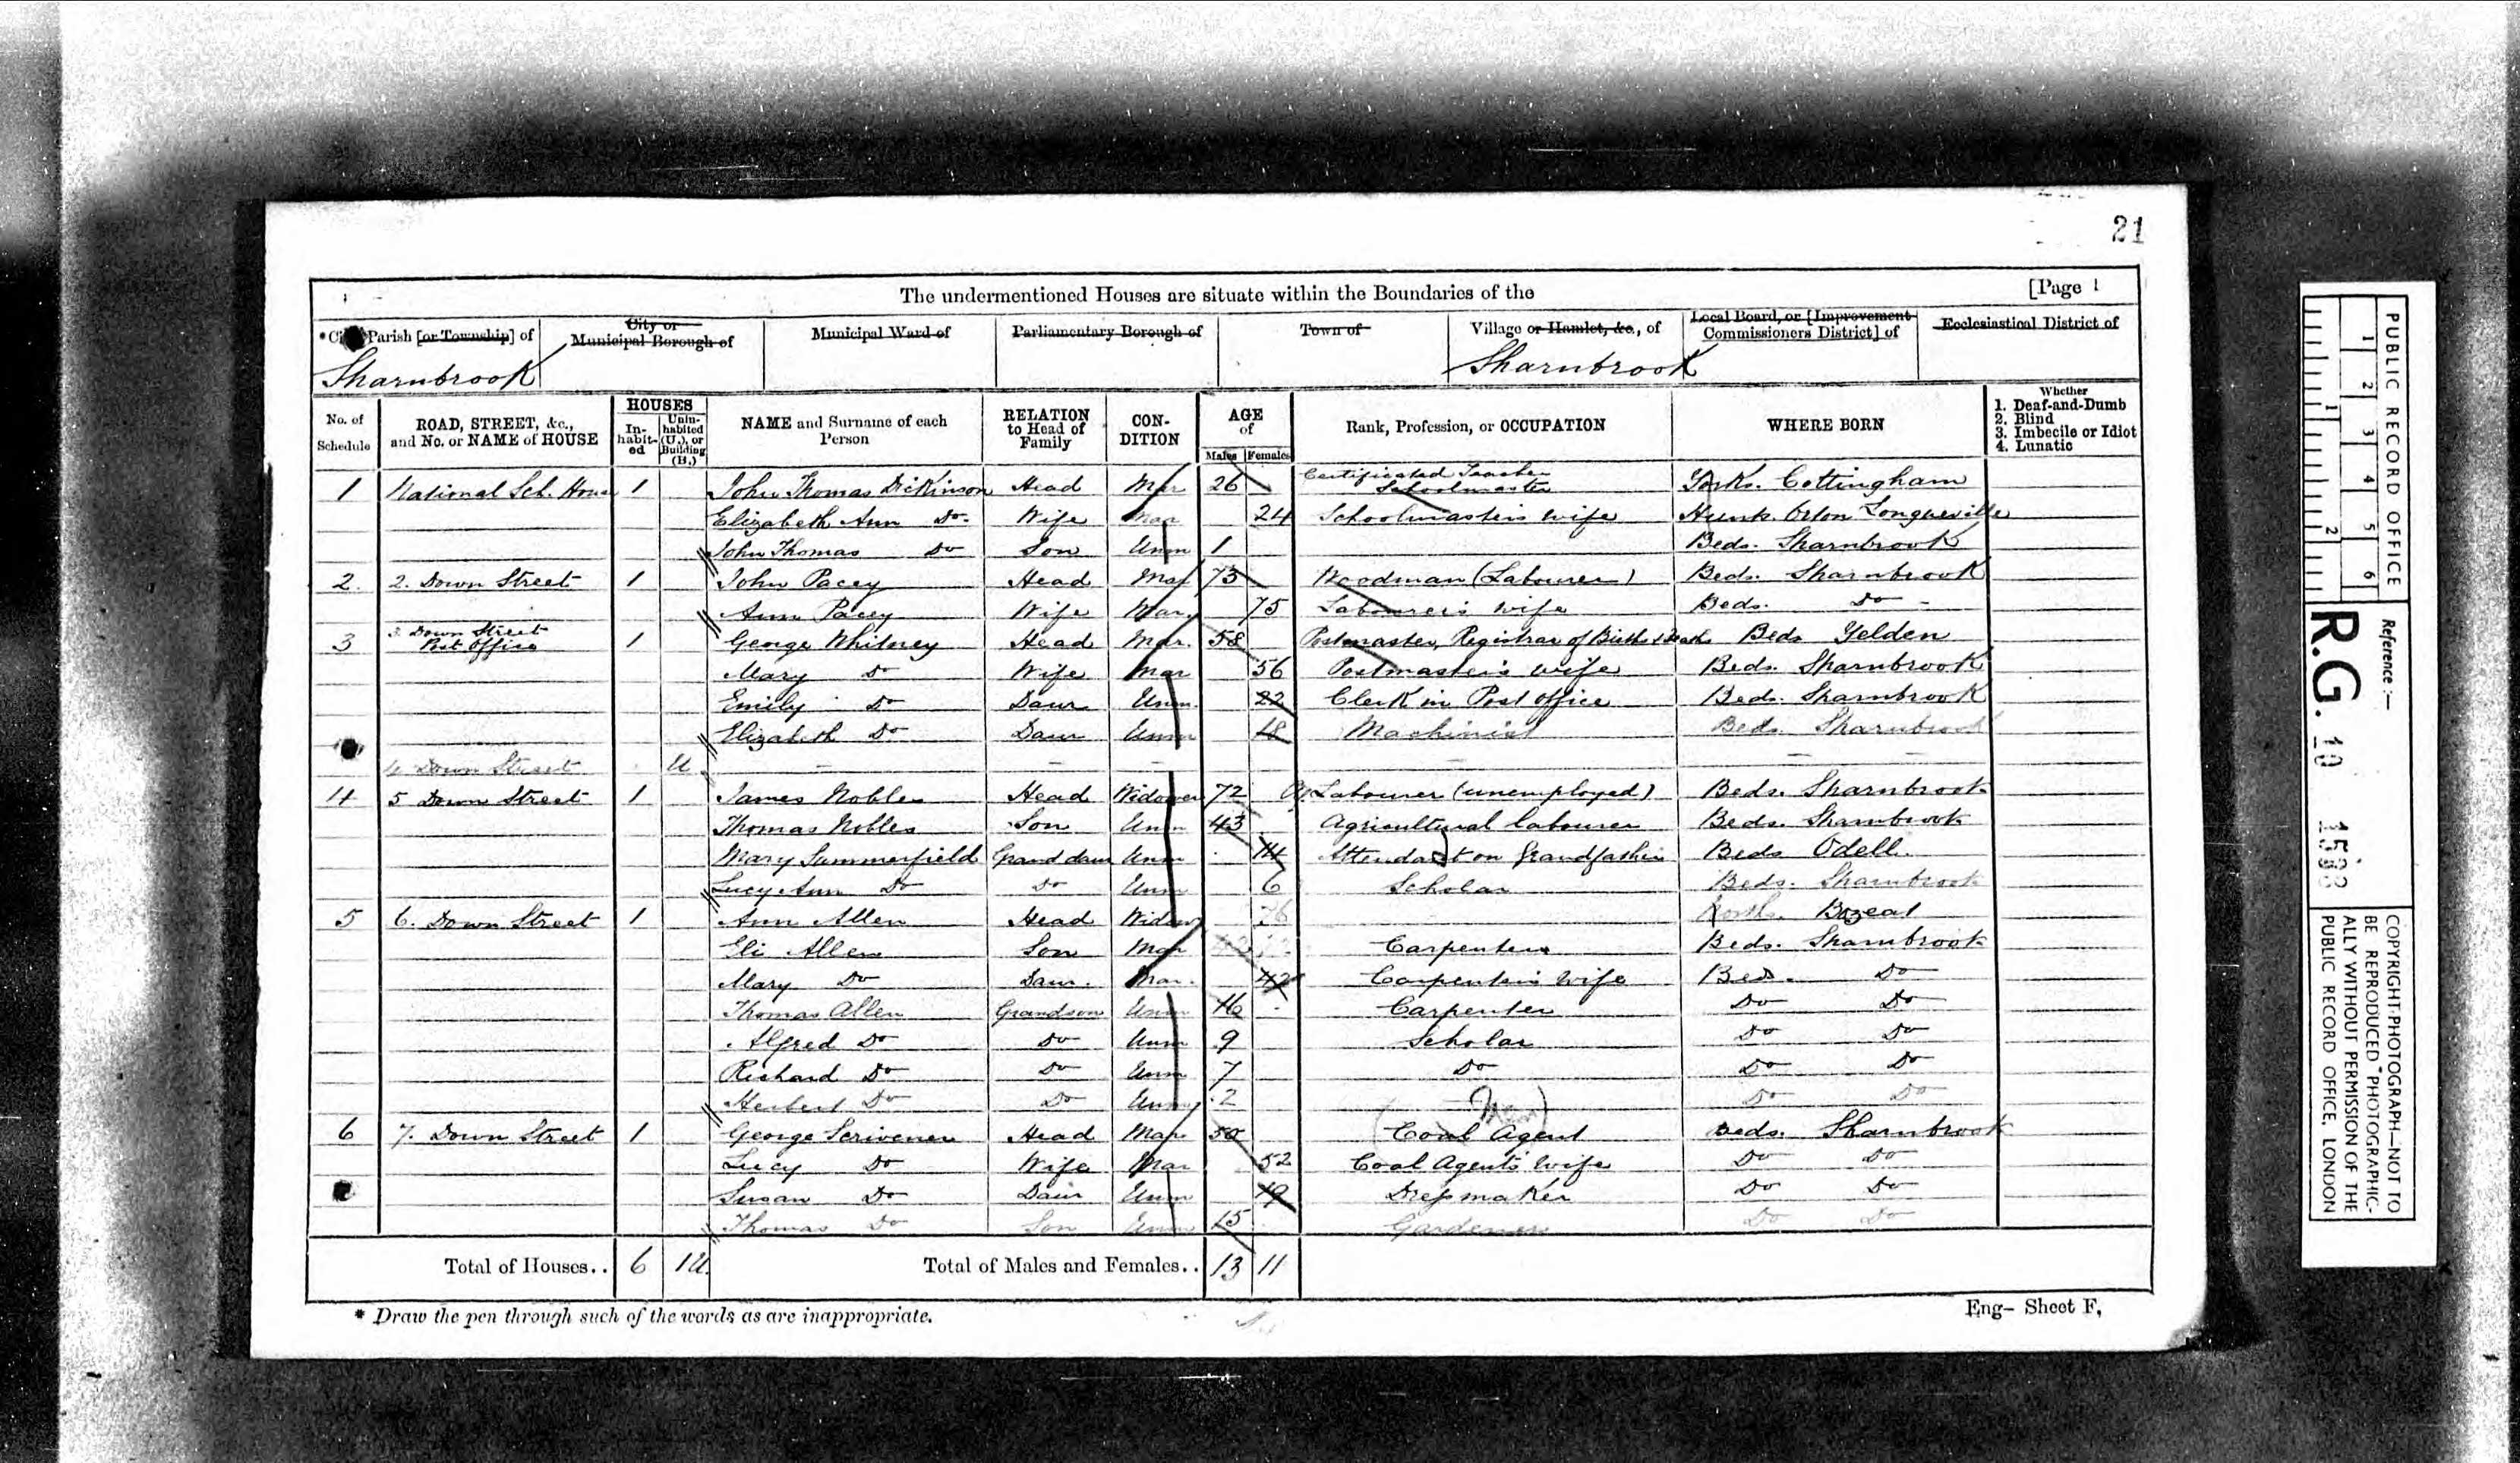 21
The undermentioned Houses are situate within the Boundaries of the [Page 1
Parish [or Township] of City or Municipal Borough of Municipal Ward of Parliamentary Borough of Town of Village or Hamlet, &c., of Local Board, or [Improvement Commissioners District] of Ecclesiastical District of
Sharnbrook Sharnbrook
No. of Schedule ROAD, STREET, &c., and No. or NAME of HOUSE HOUSES Inhabited Uninhabited (U.), or Building (B.) NAME and Surname of each Person RELATION to Head of Family CONDITION AGE of Males Females Rank, Profession, or OCCUPATION WHERE BORN Whether 1. Deaf-and-Dumb 2. Blind 3. Imbecile or Idiot 4. Lunatic
1 National Sch. House 1 John Thomas Dickinson Head Mar 26 Certificated Teacher Schoolmaster Yorks. Cottingham
Elizabeth Ann Do. Wife Mar 24 Schoolmaster's wife Hunts. Orton Longueville
John Thomas Do Son Unm 1 Beds. Sharnbrook
2. 2. Down Street 1 John Pacey Head Mar 73 Woodman (Labourer) Beds. Sharnbrook
Ann Pacey Wife Mar 75 Labourer's wife Beds. Do
3 3. Down Street Post Office 1 George Whitney Head Mar. 58 Postmaster, Registrar of Births & Deaths Beds Yelden
Mary Do Wife Mar 56 Postmaster's wife Beds. Sharnbrook
Emily Do Daur Unm. 22 Clerk in Post office Beds. Sharnbrook
Elizabeth Do Daur Unm 18 Machinist Beds. Sharnbrook
4 Down Street U
4 5 Down Street 1 James Nobles Head Widower 72 Ag. Labourer (unemployed) Beds. Sharnbrook
Thomas Nobles Son Unm 43 Agricultural labourer Beds. Sharnbrook
Mary Summerfield Grand daur Unm 14 Attendant on Grandfather Beds Odell.
Lucy Ann Do Do Unm 6 Scholar Beds. Sharnbrook
5 6. Down Street 1 Ann Allen Head Widow 76 North. Bozeat
Eli Allen Son Mar Carpenter Beds. Sharnbrook
Mary Do Daur. Mar. 42 Carpenter's wife Beds. Do
Thomas Allen Grandson Unm 16 Carpenter Do Do
Alfred Do Do Unm 9 Scholar Do Do
Richard Do Do Unm 7 Do Do Do
Herbert Do Do Unm 2 Do Do
6 7. Down Street 1 George Scrivener Head Mar 50 Coal Agent Beds. Sharnbrook
Lucy Do Wife Mar 52 Coal Agent's wife Do Do
Susan Do Daur Unm 19 Dressmaker Do Do
Thomas Do Son Unm 15 Gardener Do Do
Total of Houses.. 6 1U. Total of Males and Females.. 13 11
* Draw the pen through such of the words as are inappropriate.
Eng- Sheet F.
PUBLIC RECORD OFFICE
1 2 3 4 5 6
1 2
Reference :—
R.G. 10 1538
COPYRIGHT PHOTOGRAPH—NOT TO BE REPRODUCED PHOTOGRAPHICALLY WITHOUT PERMISSION OF THE PUBLIC RECORD OFFICE, LONDON